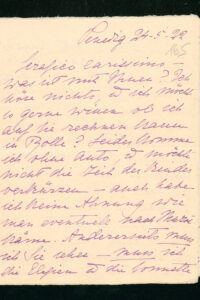 Venedig 24-5-22
165
Serafico carissimo -
was ist mit Ihnen? Ich
höre nichts, u ich möcht
so gerne wissen ob ich
auf Sie rechnen kann
in Rolle? Leider komme
ich ohne Auto, u möchte
nicht die Zeit des Rendez
verkürzen - auch habe
ich keine Ahnung wie
man eventuell nach
käme. Andererseits muss
ich Sie sehen - muss ich
die Elegien u die Sonnette